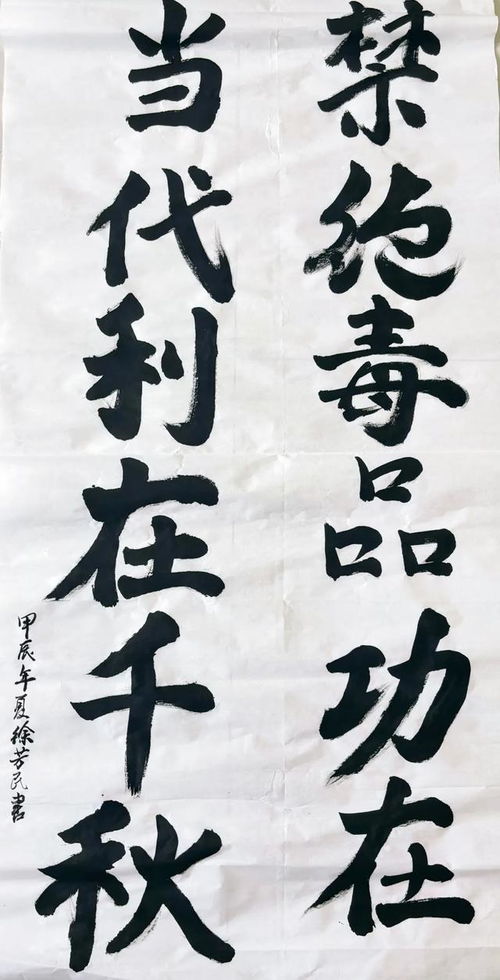 禁绝毒品功在
当代利在千秋
甲辰年夏徐芳民書